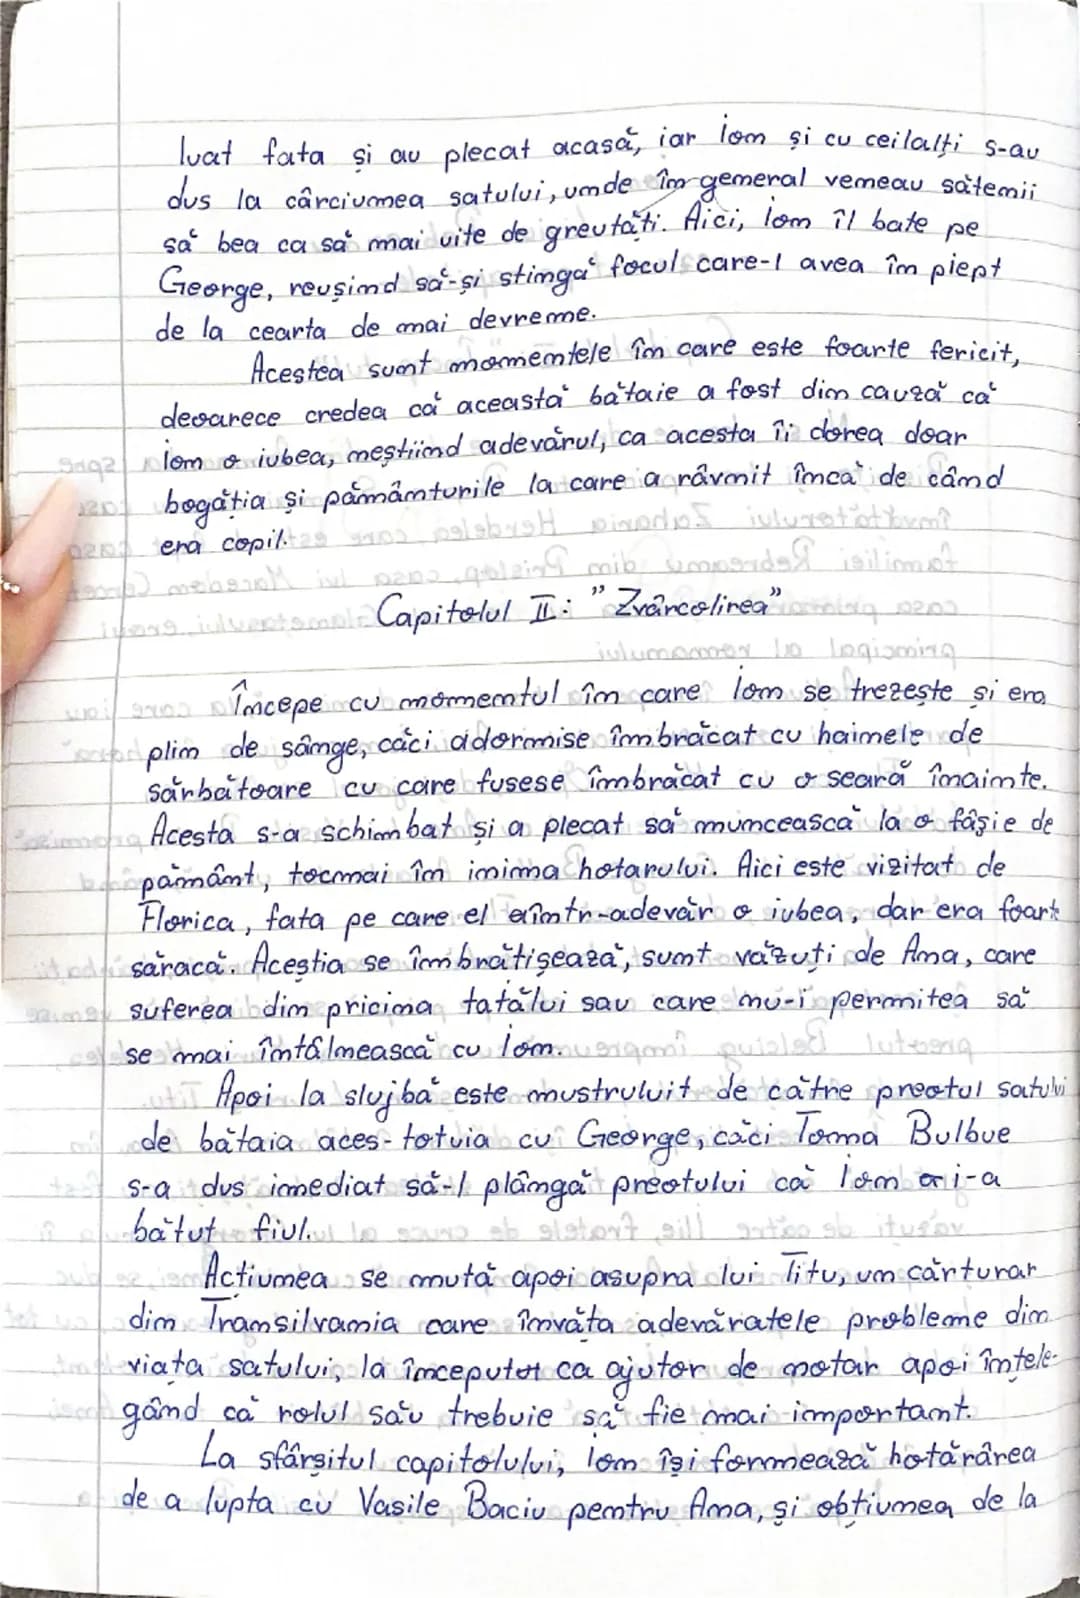 luat fata și au plecat acasă, iar Ion și cu ceilalți s-au
dus la cârciumea satului, unde în general veneau sătenii
să bea ca să mai uite de greutăți. Aici, Ion îl bate pe
George, reușind să-și stingă focul care-l avea în piept
de la cearta de mai devreme.
Acestea sunt momentele în care este foarte fericit,
deoarece credea că această bătaie a fost din cauză că
Ion o iubea, neștiind adevărul, ca acesta îi dorea doar
bogăția și pământurile la care a râvnit încă de când
era copil.
Capitolul II: "Zvârcolirea"
Începe cu momentul în care Ion se trezește și era
plin de sânge, căci adormise îmbrăcat cu hainele de
sărbătoare cu care fusese îmbrăcat cu o seară înainte.
Acesta s-a schimbat și a plecat să muncească la o fâșie de
pământ, tocmai în inima hotarului. Aici este vizitat de
Florica, fata pe care el într-adevăr o iubea, dar era foarte
săracă. Aceștia se îmbrățișează, sunt văzuți de Ana, care
suferea din pricina tatălui său care nu-i permitea să
se mai întâlnească cu Ion.
Apoi la slujbă este mustruluit de către preotul satului
de bătaia aces-totuia cu George, căci Toma Bulbuc
s-a dus imediat să-l plângă preotului că Ion i-a
bătut fiul.
Acțiunea se mută apoi asupra lui Titu, un cărturar
din Transilvania care învăța adevăratele probleme din
viața satului, la început ca ajutor de notar apoi întele-
gând că rolul său trebuie să fie mai important.
La sfârșitul capitolului, Ion își formează hotărârea
de a lupta cu Vasile Baciu pentru Ana, și obținea de la